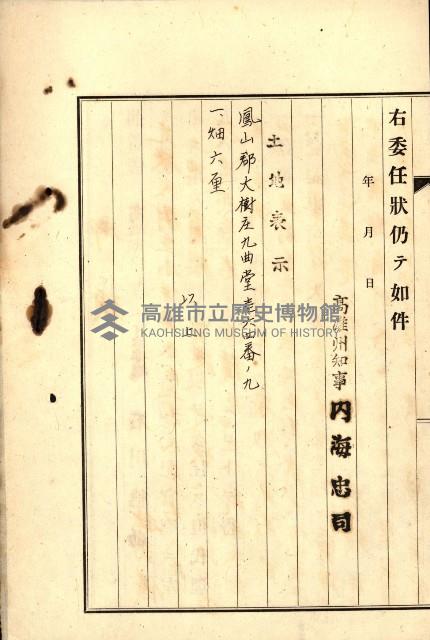 右委任狀仍テ如件
年 月 日
高雄州知事 內海忠司
土地表示
鳳山郡大樹庄九曲堂 六四番ノ九
一、畑六厘
以上
高雄市立歷史博物館
KAOHSIUNG MUSEUM OF HISTORY